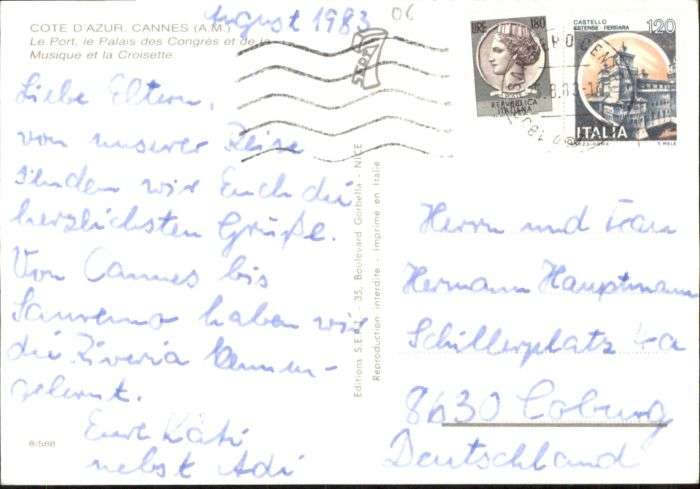 August 1983
06
COTE D'AZUR. CANNES (A.M.)
Le Port, le Palais des Congrès et de la
Musique et la Croisette
Liebe Eltern,
von unserer Reise
senden wir Euch die
herzlichsten Grüße.
Von Cannes bis
Sanremo haben wir
die Riveria kennen-
gelernt.
Eure Käti
nebst Adi
6/588
Editions S.E.P.T. - 35, Boulevard Gorbella - NICE
Reproduction interdite - Imprimé en Italie
LIRE 180
REPUBBLICA
ITALIANA
CASTELLO
ESTENSE FERRARA
120
ITALIA
Herrn und Frau
Hermann Hauptmann
Schillerplatz 4a
8630 Coburg
Deutschland